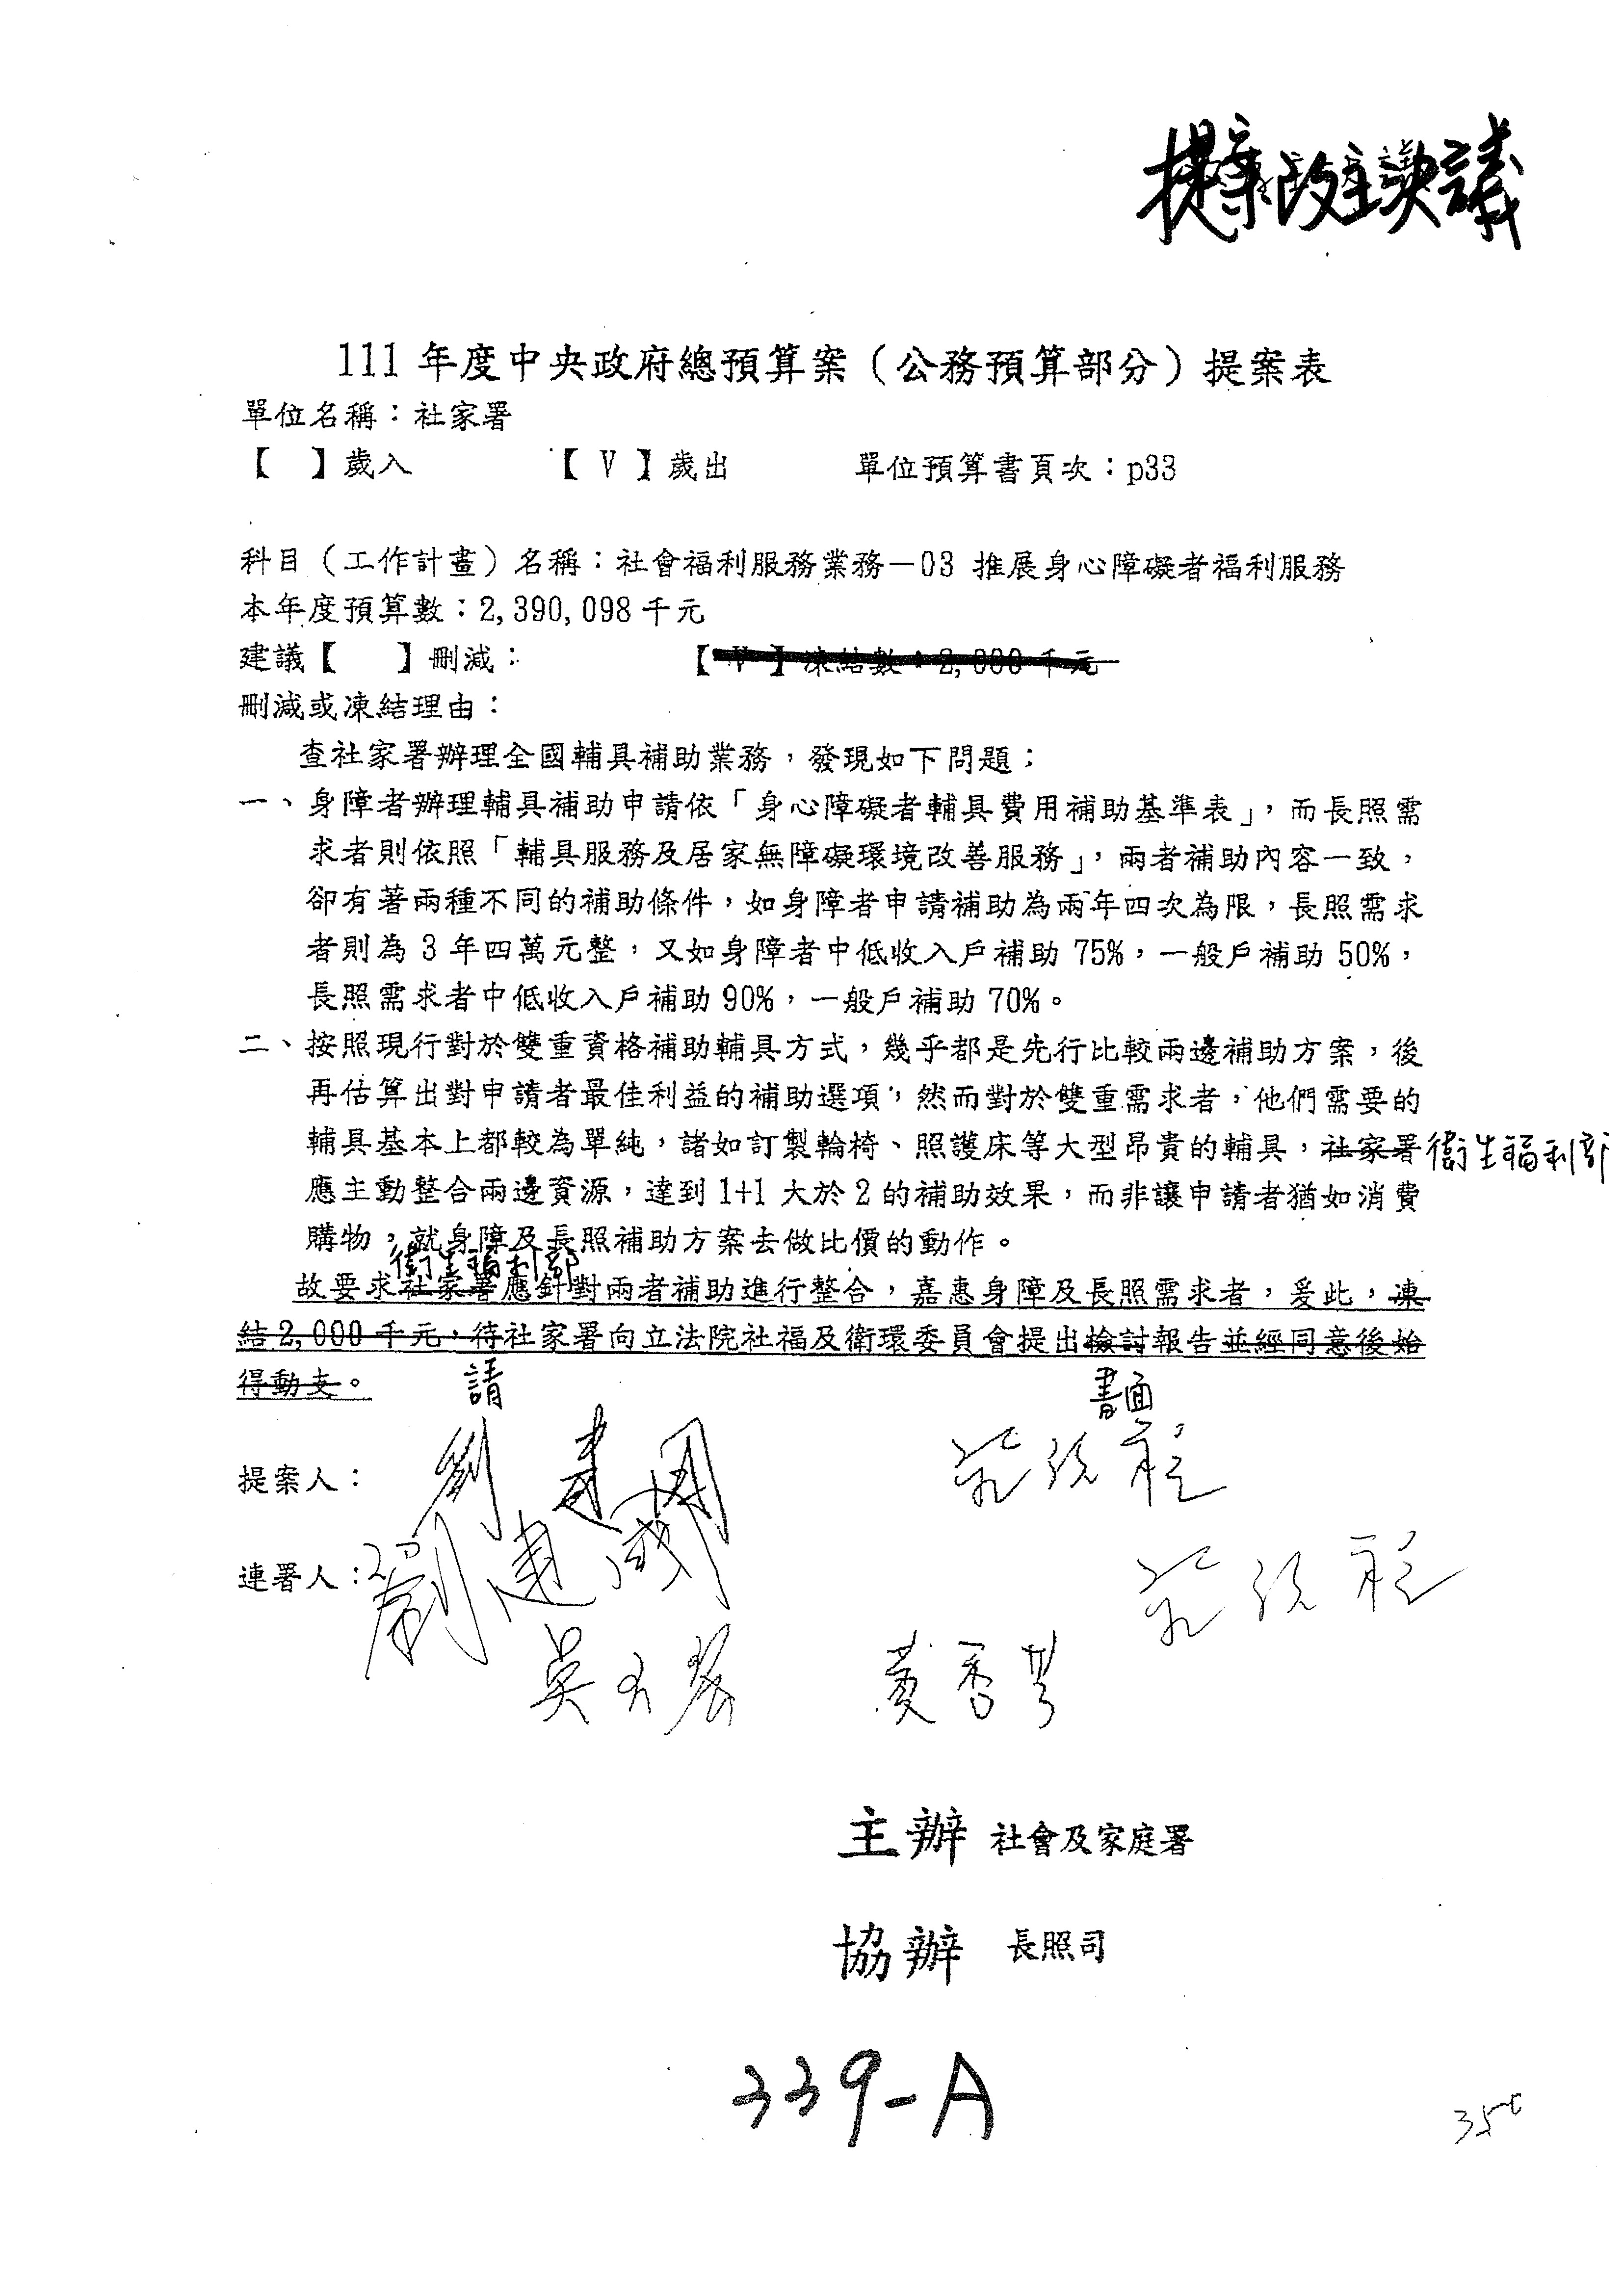 提案改主決議
111 年度中央政府總預算案（公務預算部分）提案表
單位名稱：社家署
【　】歲入　【 V 】歲出　單位預算書頁次：p33
科目（工作計畫）名稱：社會福利服務業務－03 推展身心障礙者福利服務
本年度預算數：2,390,098 千元
建議【　】刪減：　【 V 】凍結數：2,000 千元
刪減或凍結理由：
查社家署辦理全國輔具補助業務，發現如下問題；
一、身障者辦理輔具補助申請依「身心障礙者輔具費用補助基準表」，而長照需
求者則依照「輔具服務及居家無障礙環境改善服務」，兩者補助內容一致，
卻有著兩種不同的補助條件，如身障者申請補助為兩年四次為限，長照需求
者則為 3 年四萬元整，又如身障者中低收入戶補助 75%，一般戶補助 50%，
長照需求者中低收入戶補助 90%，一般戶補助 70%。
二、按照現行對於雙重資格補助輔具方式，幾乎都是先行比較兩邊補助方案，後
再估算出對申請者最佳利益的補助選項，然而對於雙重需求者，他們需要的
輔具基本上都較為單純，諸如訂製輪椅、照護床等大型昂貴的輔具，社家署衛生福利部
應主動整合兩邊資源，達到 1+1 大於 2 的補助效果，而非讓申請者猶如消費
購物，就身障及長照補助方案去做比價的動作。
衛生福利部
故要求社家署應針對兩者補助進行整合，嘉惠身障及長照需求者，爰此，凍
結 2,000 千元，待社家署向立法院社福及衛環委員會提出檢討報告並經同意後始
得動支。　請　書面
提案人：劉建國
連署人：
吳玉琴　黃秀芳
主辦 社會及家庭署
協辦 長照司
339-A